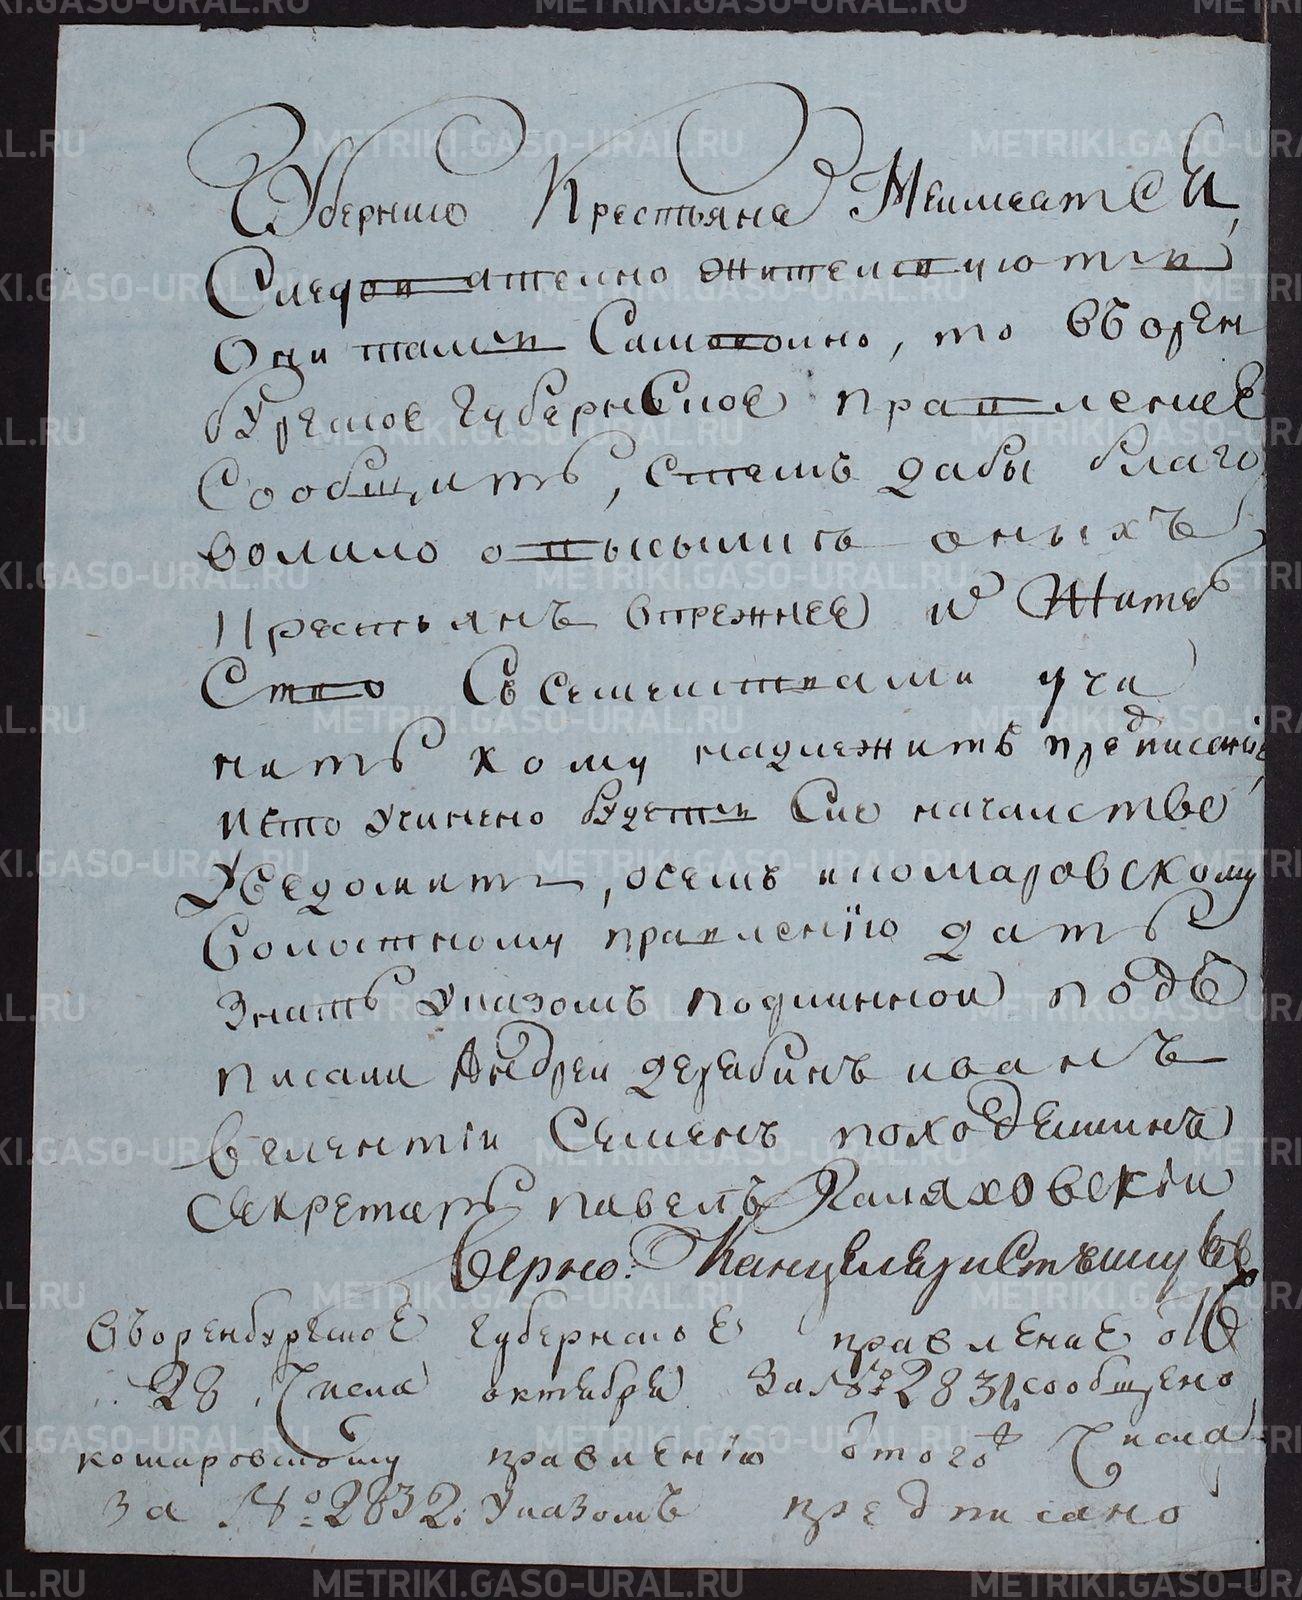 Губернию Крестьяне Неимеатся
Следователно жителствуютъ
Они тамъ Самоволно, то въорен
бургское Губернское правление
Сообщить, стемъ дабы благо
волило овысылкъ оныхъ
крестьянъ впрежнее ихъ Жител
Ство Съсемействами учи
нить кому надлежитъ предписание
ичто учинено будетъ Сие началство
Уведомить, осемъ икомаровскому
Волостному правленїю дать
знать Указомъ подлинной подъ
писали Андреи дерябинъ иванъ
велентіи Семенъ походяшинъ
Секретарь павелъ Каляховскіи
Верно: Канцеляристъ
Въоренбургское губернское правление отъ
28 Числа октября За №: 2831, сообщено
комаровскому правленїю отого Числа
За №: 2832: Указомъ предписано
METRIKI.GASO-URAL.RU